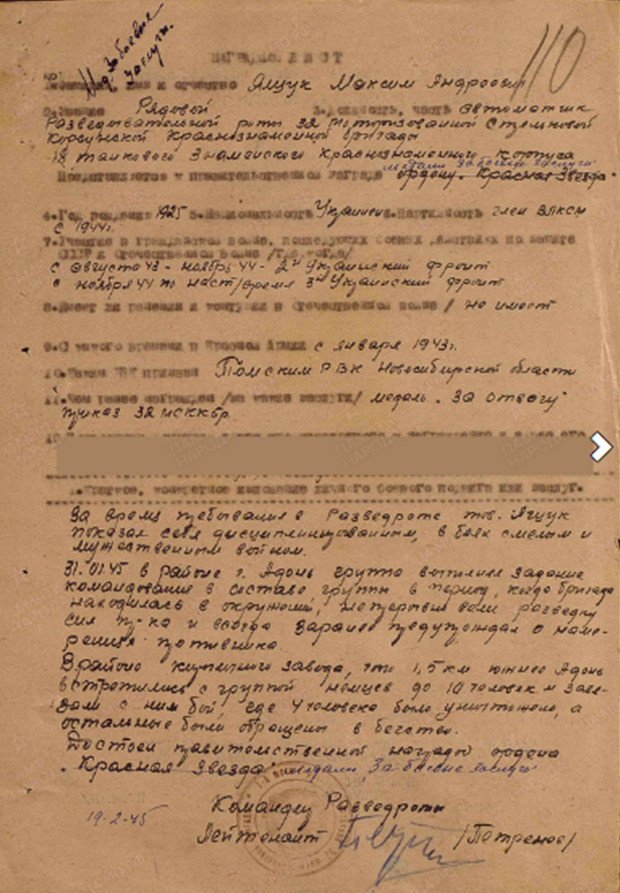 Мед. За боевые
заслуги.
110
НАГРАДНОЙ ЛИСТ
имя и отчество Ящук Максим Андреевич
2. Звание Рядовой 3. Должность, часть автоматчик
Разведывательной роты 32 моторизованной Стрелковой
Корсунской Краснознаменной бригады
18 танкового Знаменского Краснознаменного корпуса
медали За боевые заслуги
Представляется к правительственной награде ордену "Красная Звезда"
4. Год рождения 1925 5. Национальность Украинец 6. Партийность член ВЛКСМ
с 1944г.
7. Участие в гражданской войне, последующих боевых действиях по защите
СССР и Отечественной войне /где, когда/
с августа 43 - ноябрь 44 - 2й Украинский фронт
с ноября 44 по наст/время 3й Украинский фронт
8. Имеет ли ранения и контузии в Отечественной войне / не имеет
9. С какого времени в Красной Армии с января 1943г.
10. Каким РВК призван Томским РВК Новосибирской области
11. Чем ранее награжден /за какие заслуги/ медаль "За отвагу"
приказ 32 мсккбр.
1. Краткое, конкретное изложение личного боевого подвига или заслуг.
За время пребывания в Разведроте тов. Ящук
показал себя дисциплинированным, в боях смелым и
мужественным воином.
31.01.45 в районе г. Адонь группа выполняя задание
командования в составе группы в период, когда бригада
находилась в окружении, непрерывно вели разведку
сил пр-ка и всегда заранее предупреждал о наме-
рениях противника.
В районе кирпичного завода, что 1,5 км южнее Адонь
встретились с группой немцев до 10 человек и завя-
зали с ним бой, где 4 человека было уничтожено, а
остальные были обращены в бегство.
Достоин правительственной награды ордена
"Красная Звезда" медали "За боевые заслуги"
Командир Разведроты
19-2-45
Лейтенант /Петренко/